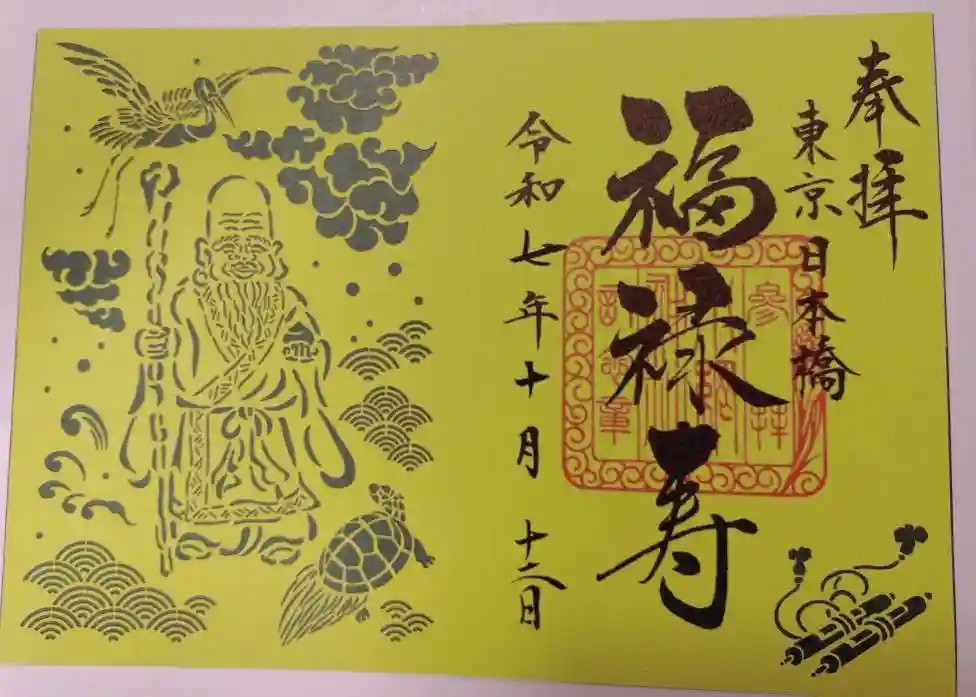 奉拝
東京日本橋
福禄寿
令和七年十月
参拝